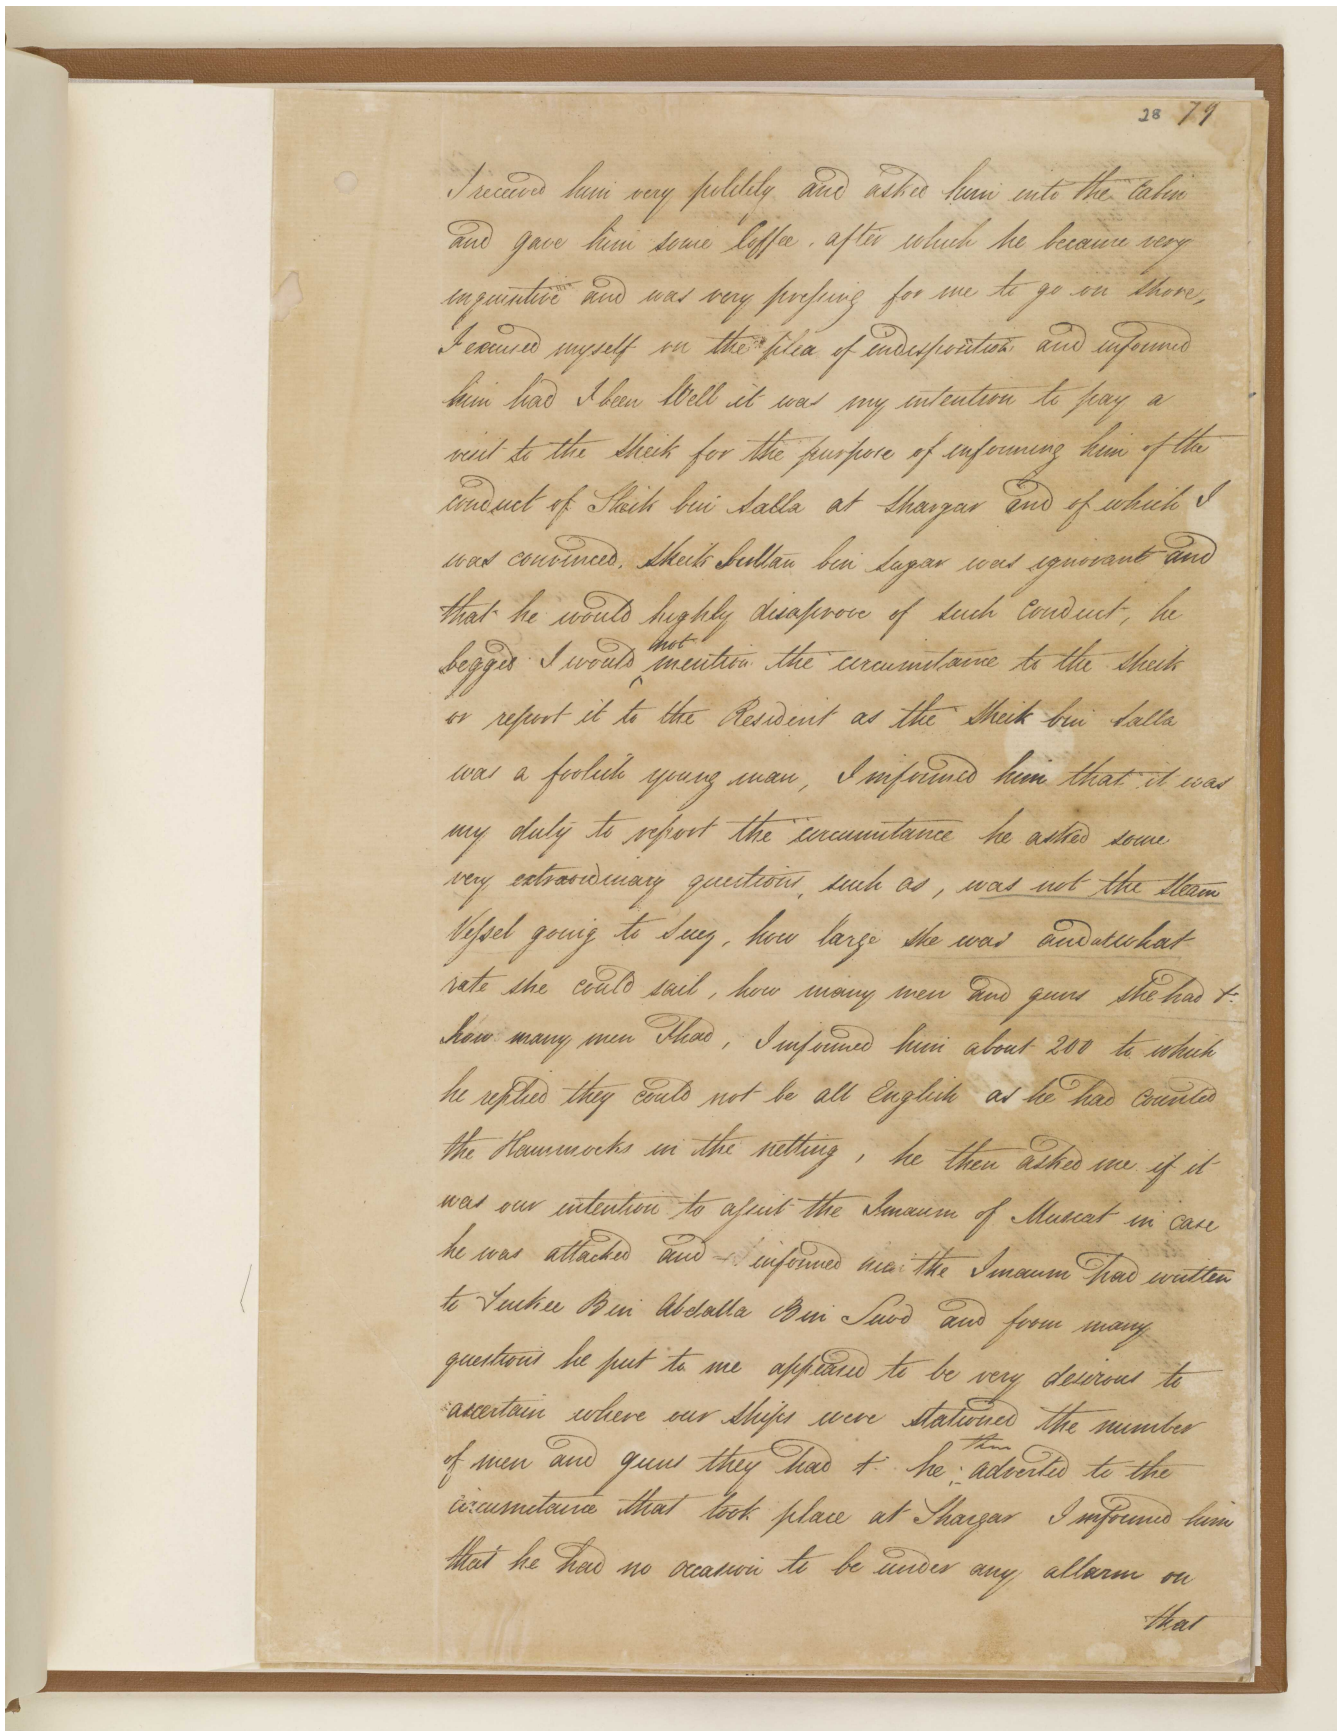 28 79
I received him very politely and asked him into the Cabin
and gave him some Coffee. after which he became very
inquisitive and was very pressing for me to go on shore,
I excused myself on the plea of indisposition and informed
him had I been Well it was my intention to pay a
visit to the Sheik for the purpose of informing him of the
conduct of Sheik bin Salla at Shargar and of which I
was convinced. Sheik Sultan bin Sugar was ignorant and
that he would highly disaprove of such Conduct, he
begged I would not mention the circumstance to the Sheik
or report it to the Resident as the Sheik bin Salla
was a foolish young man, I informed him that it was
my duty to report the circumstance he asked some
very extraordinary questions, such as, was not the Steam
Vessel going to Suez, how large she was and at what
rate she could sail, how many men and guns she had &
how many men I had, I informed him about 200 to which
he replied they could not be all English as he had Counted
the Hammocks in the netting, he then asked me if it
was our intention to assist the Imaum of Muscat in Case
he was attacked and informed me the Imaum had written
to Turkee Bin Abdalla Bin Suod and from many
questions he put to me appeared to be very desirous to
ascertain where our Ships were stationed the number
of men and guns they had &c he then adverted to the
circumstance that took place at Shargar I informed him
that he had no occasion to be under any allarm on
that